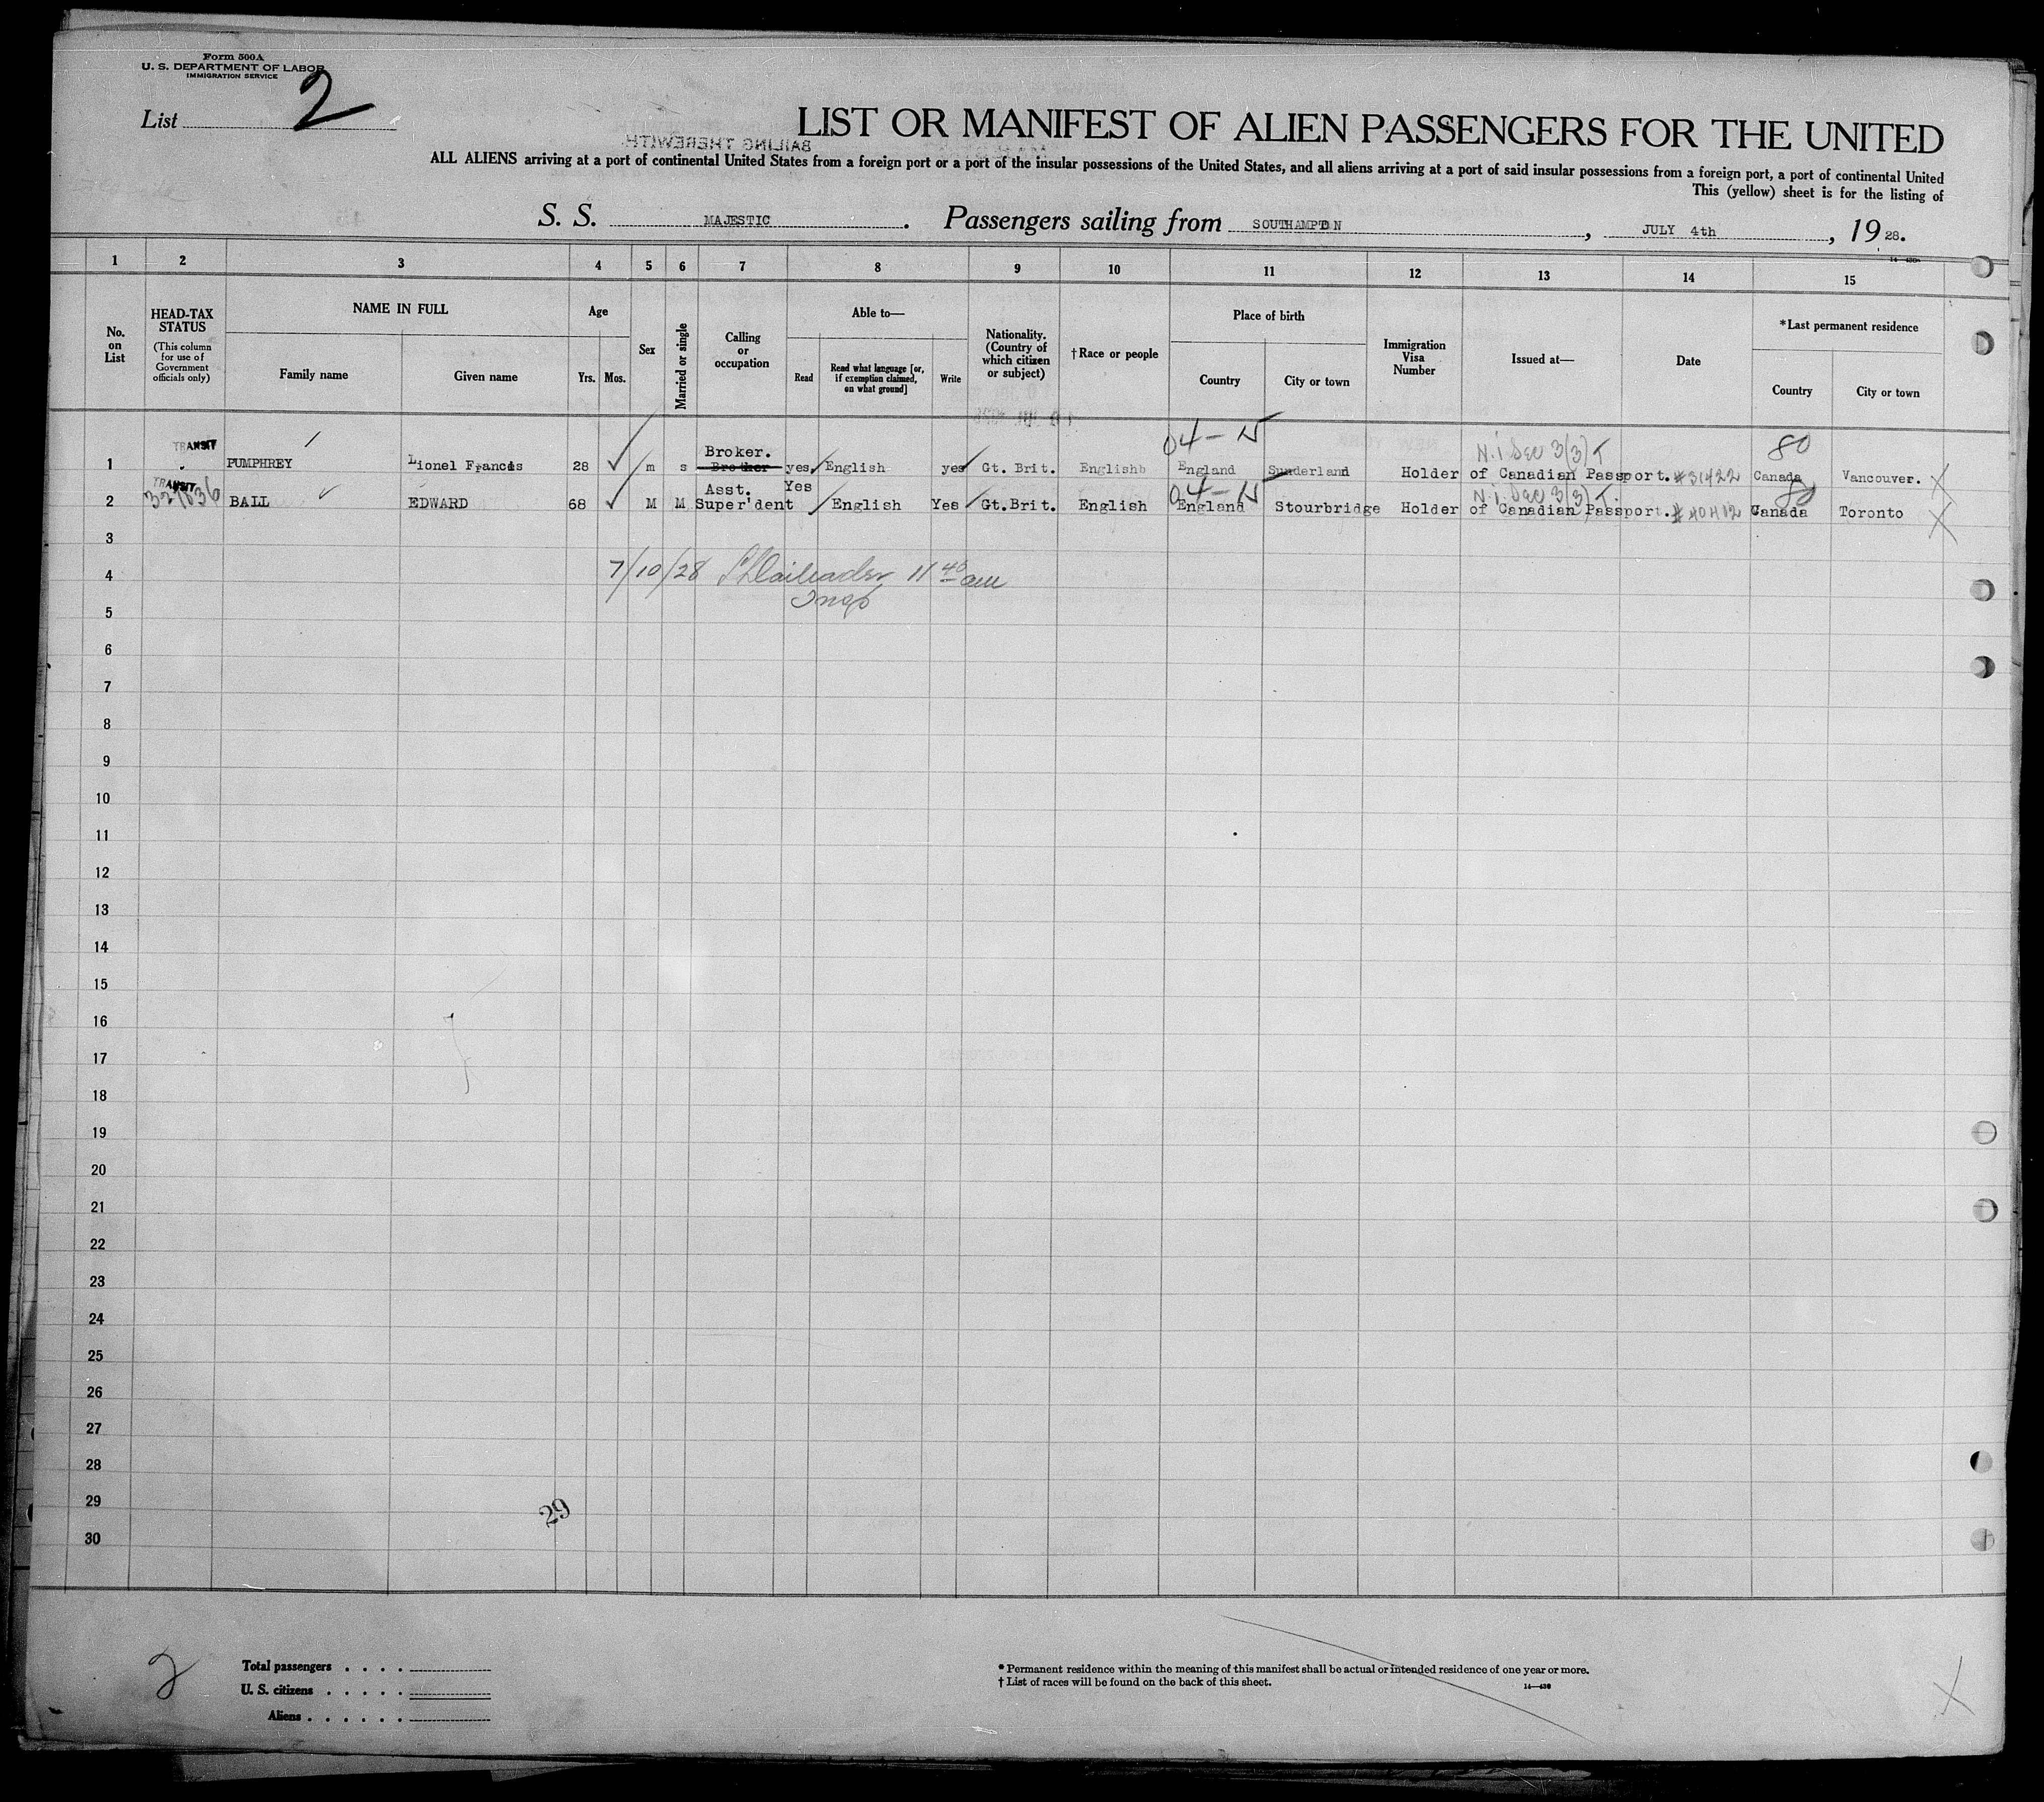 Form 500A
U. S. DEPARTMENT OF LABOR
IMMIGRATION SERVICE
List 2
LIST OR MANIFEST OF ALIEN PASSENGERS FOR THE UNITED
SAILING THEREWITH
ALL ALIENS arriving at a port of continental United States from a foreign port or a port of the insular possessions of the United States, and all aliens arriving at a port of said insular possessions from a foreign port, a port of continental United
This (yellow) sheet is for the listing of
S. S. MAJESTIC. Passengers sailing from SOUTHAMPTON, JULY 4th, 19 28.
1 2 3 4 5 6 7 8 9 10 11 12 13 14 15
No. on List
HEAD-TAX STATUS
(This column for use of Government officials only)
NAME IN FULL
Family name
Given name
Age
Yrs. Mos.
Sex
Married or single
Calling or occupation
Able to—
Read
Read what language [or, if exemption claimed, on what ground]
Write
Nationality. (Country of which citizen or subject)
†Race or people
Place of birth
Country
City or town
Immigration Visa Number
Issued at—
Date
*Last permanent residence
Country
City or town
TRANSIT Broker. 04-N N.i. Sec 3(3) T 80
1 PUMPHREY Lionel Francis 28 m s Brother yes English yes Gt. Brit. Englishb England Sunderland Holder of Canadian Passport. #31422 Canada Vancouver. X
TRANSIT Asst. Yes 04-N N.i. Sec 3(3) T. 80
2 BALL EDWARD 68 M M Super'dent English Yes Gt.Brit. English England Stourbridge Holder of Canadian Passport. #40412 Canada Toronto X
3
4 7/10/28 11 40 am
5
6
7
8
9
10
11
12
13
14
15
16
17
18
19
20
21
22
23
24
25
26
27
28
29 29
30
2
Total passengers
U. S. citizens
Aliens
* Permanent residence within the meaning of this manifest shall be actual or intended residence of one year or more.
† List of races will be found on the back of this sheet.
14—430
X